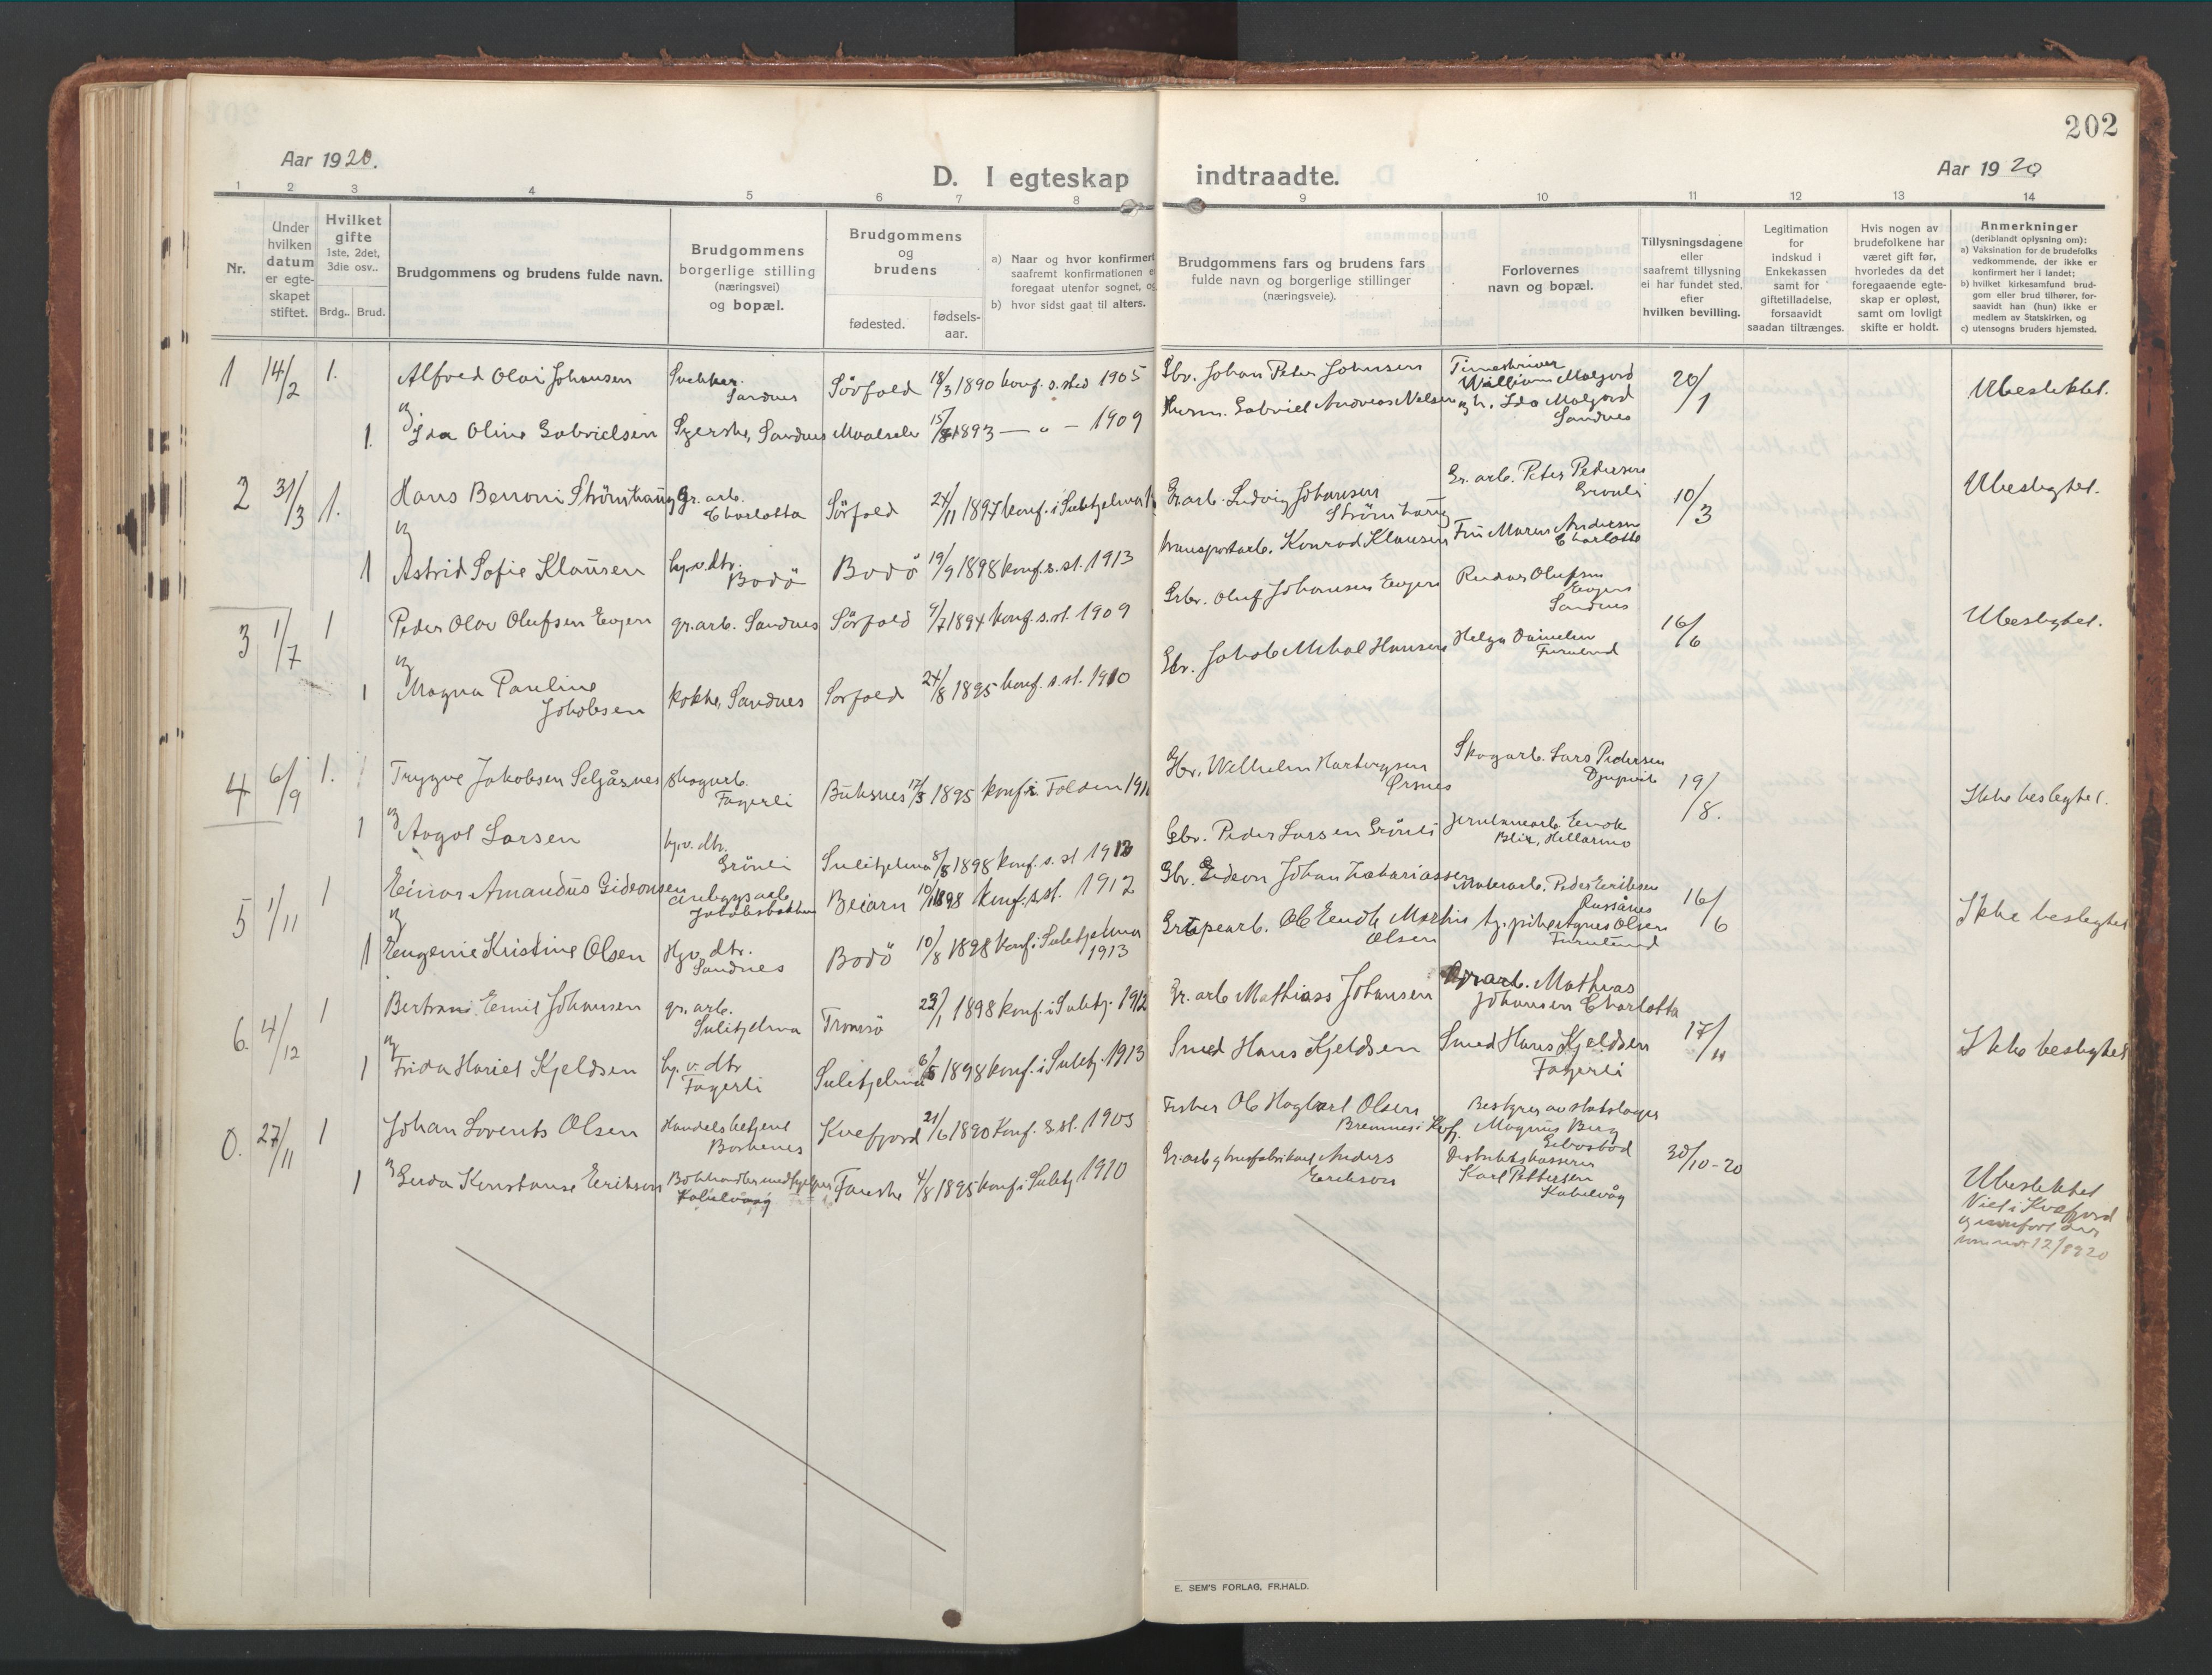 202
Aar 1920.
D. I egteskap indtraadte.
Aar 1920
1 2 3 4 5 6 7 8 9 10 11 12 13 14
Nr.
Under hvilken datum er egteskapet stiftet.
Hvilket gifte 1ste, 2det, 3die osv..
Brdg.. Brud.
Brudgommens og brudens fulde navn.
Brudgommens borgerlige stilling (næringsvei) og bopæl.
Brudgommens og brudens
fødested.
fødsels-aar.
a) Naar og hvor konfirmert
saafremt konfirmationen
foregaat utenfor sognet,
b) hvor sidst gaat til alters.
Brudgommens fars og brudens fars
fulde navn og borgerlige stillinger
(næringsveie).
Forlovernes
navn og bopæl.
Tillysningsdagene
eller
saafremt tillysning
ei har fundet sted,
efter
hvilken bevilling.
Legitimation
for
indskud i
Enkekassen
samt for
giftetilladelse,
forsaavidt
saadan tiltrænges.
Hvis nogen av
brudefolkene har
været gift før,
hvorledes da det
foregaaende egte-
skap er opløst,
samt om lovligt
skifte er holdt.
Anmerkninger
(deriblandt oplysning om):
a) Vaksination for de brudefolks
vedkommende, der ikke er
konfirmert her i landet;
b) hvilket kirkesamfund brud-
gom eller brud tilhører, for-
saavidt han (hun) ikke er
medlem av Statskirken, og
c) utensogns bruders hjemsted.
1 14/2 1. Alfred Olai Johansen Sandnes Sörfold 18/3 1890 konf. s. sted 1905 Gbr. Johan Peter Johnsen William Malgord 20/1 Ubeslektet.
og
1. Ida Oline Gabrielsen Syerske, Sandnes 1893 — " — 1909 Gabriel Andreas Nilsen Ida Malgord
Sandnes
2 31/3 1. Hans Benoni Strömhaug gr. arb.
Charlotta Sörfold 24/11 1897 konf. i Sulitjelma Gr. arb. Ludvig Johansen
Strömhaug Gr. arb. Peter Pedersen
Grönli 10/3 Ubeslegtet.
og
1 Astrid Sofie Klausen hjv. dtr.
Bodö Bodö 19/9 1898 konf. s. st. 1913 transportarb. Konrad Klausen Andersen
Charlotta
3 1/7 1 Peder Olav Olufsen Evjen gr. arb. Sandnes Sörfold 1894 konf. s. st. 1909 Gbr. Oluf Johansen Evjen Olufsen
Evjen
Sandnes 16/6 Ubeslegtet.
og
1 Magna Pauline
Jakobsen kokke, Sandnes Sörfold 24/8 1895 konf. s. st. 1910 Gbr. Jakob Mikal Hansen Helga Danielsen
Furulund
4 6/9 1. Trygve Jakobsen Selgåsnes skogarb.
Fagerli Buksnes 1895 konf. i Folden Gbr. Wilhelm Hartvigsen Skogarb. Lars Pedersen
Djupvik 19/8. Ikke beslegtet.
og
1 Aagot Larsen hjv. dtr.
Grönli Sulitjelma 8/8 1898 konf. s. st 1912 Gbr. Peder Larsen Grönli
5 1/11 1 Einar Amandus Gideonsen anlegsarb
Jakobsbakken Beiarn 1898 konf. s. st. 1912 Gbr. Gideon Johan Zakariassen Peder Eriksen
Russånes 16/6 Ikke beslegtet
og
1 Eugenie Kristine Olsen Hjv. dtr.
Sandnes Bodö 10/8 1898 konf. i Sulitjelma
1913 Ole Martin
Olsen Agnes Olsen
Furulund
6. 4/12 1 Bertram Emil Johansen gr. arb.
Sulitjelma Tromsö 1898 konf. i Sulitj. 1912 Gr. arb Mathias Johansen Mathias
Johansen Charlotta 17/11 Ikke beslegtet
og
1 Frida Hariet Kjeldsen hj. v. dtr
Fagerli Sulitjelma 1898 konf. i Sulitj. 1913 Smed Hans Kjeldsen Smed Hans Kjeldsen
Fagerli
0. 27/11 1 Johan Lorents Olsen Handelsbetjent
Borkenes Kvefjord 21/6 1890 Konf. s. st. 1905 Fisker Ole Hagbart Olsen
Bremnes i Kvfj. Bestyrer av statslager
Magnus Berg 30/10-20 Ubeslektet
og
1 Konstanse Erikson Kabelvaag Fauske 4/8 1895 konf i Sulitj 1910 Anders
Erikson Karl Pettersen
Kabelvåg
Viet i Kvefjord
E. SEM'S FORLAG, FR.HALD.